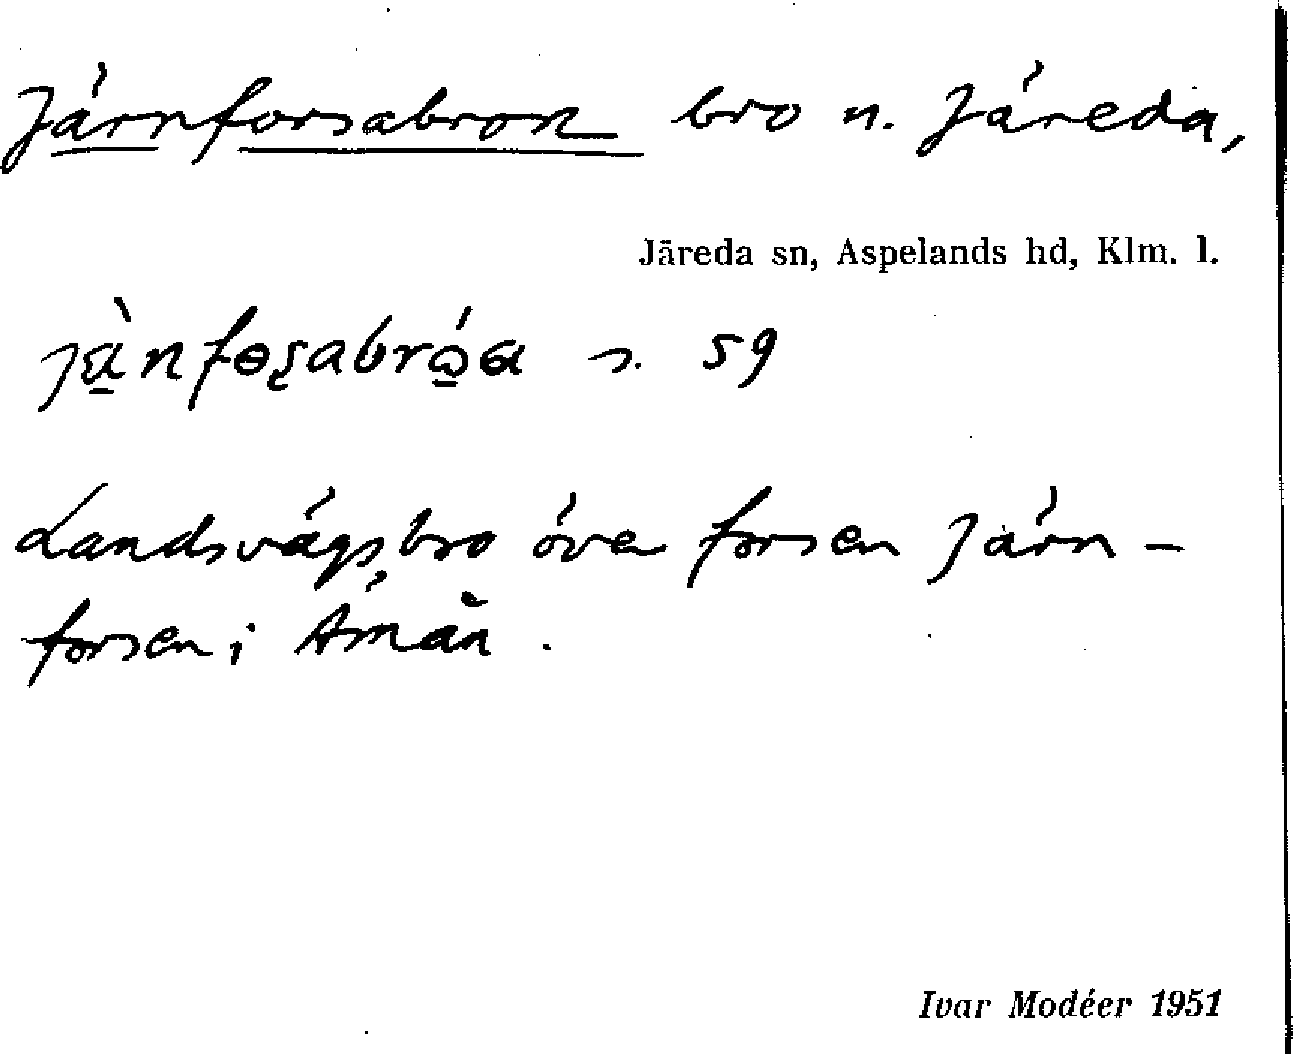 Järnforsabron bro n. Järeda,
Järeda sn, Aspelands hd, Klm. l.
s. 59
Landsvägsbro över forsen Järn-
forsen i Åmån.
Ivar Modéer 1951